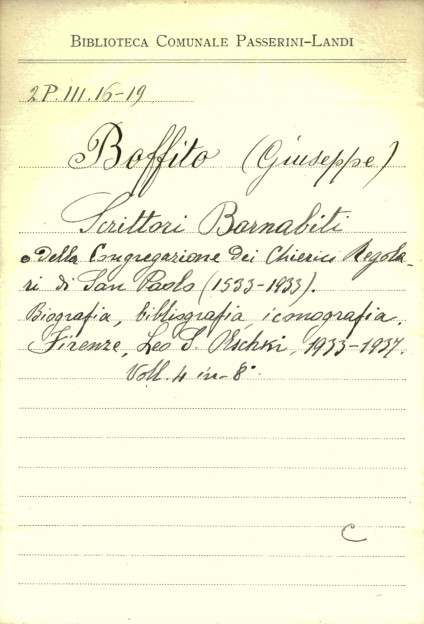 BIBLIOTECA COMUNALE PASSERINI-LANDI
2P.III.16-19
Boffito (Giuseppe)
Scrittori Barnabiti
o della Congregazione dei Chierici Regola-
ri di San Paolo (1533-1933).
Biografia, bibliografia, iconografia.
Firenze, Leo S. Olschki, 1933-1937.
Voll. 4 in-8°
C